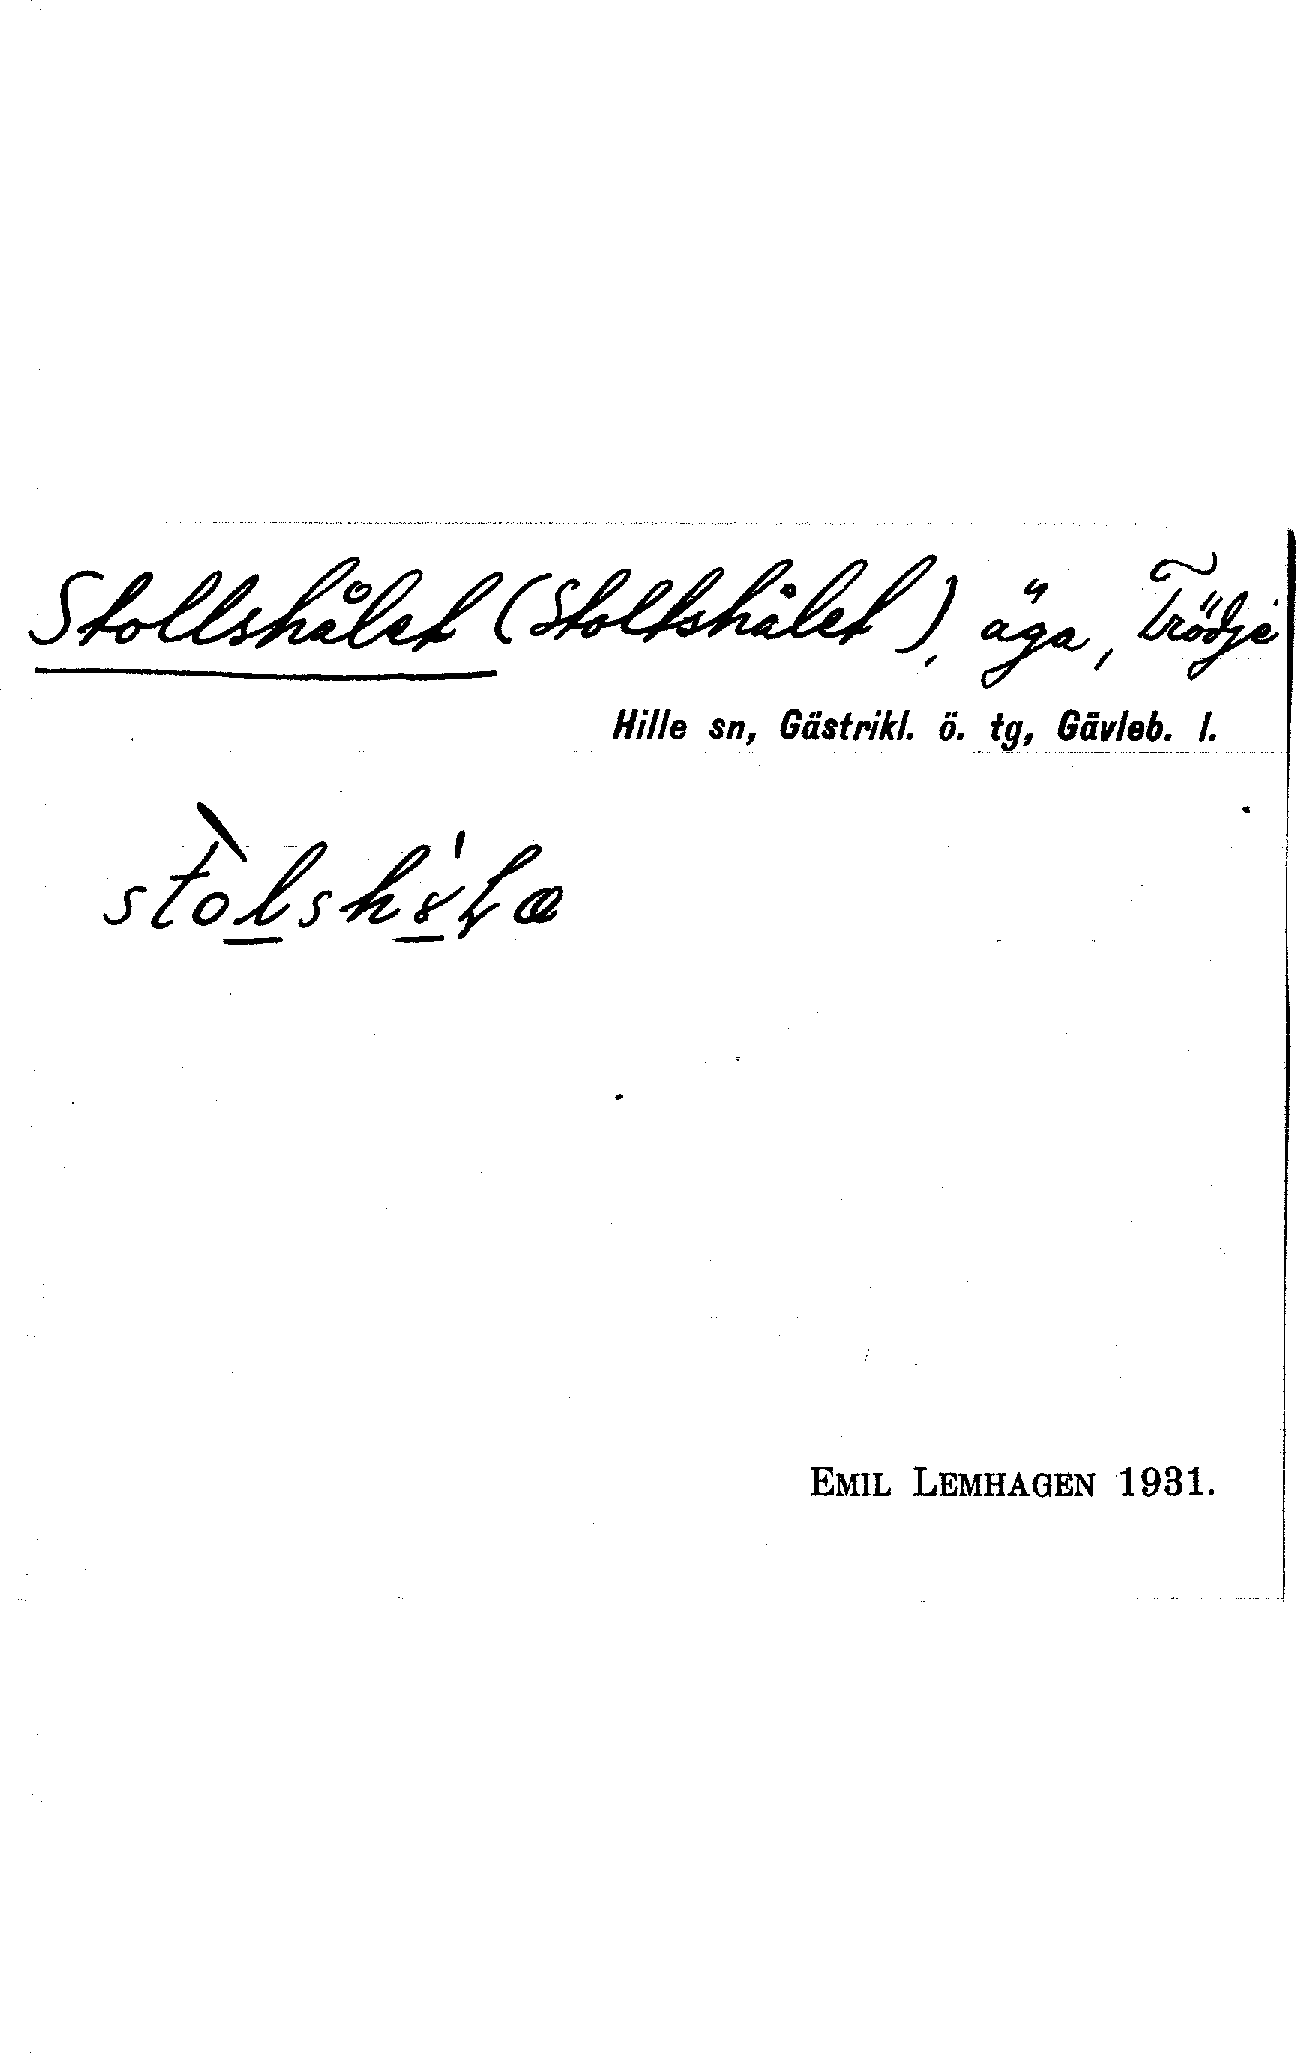 Stollshålet (Stoltshålet), äga, Trödje
Hille sn, Gästrikl. ö. tg, Gävleb. l.
EMIL LEMHAGEN 1931.